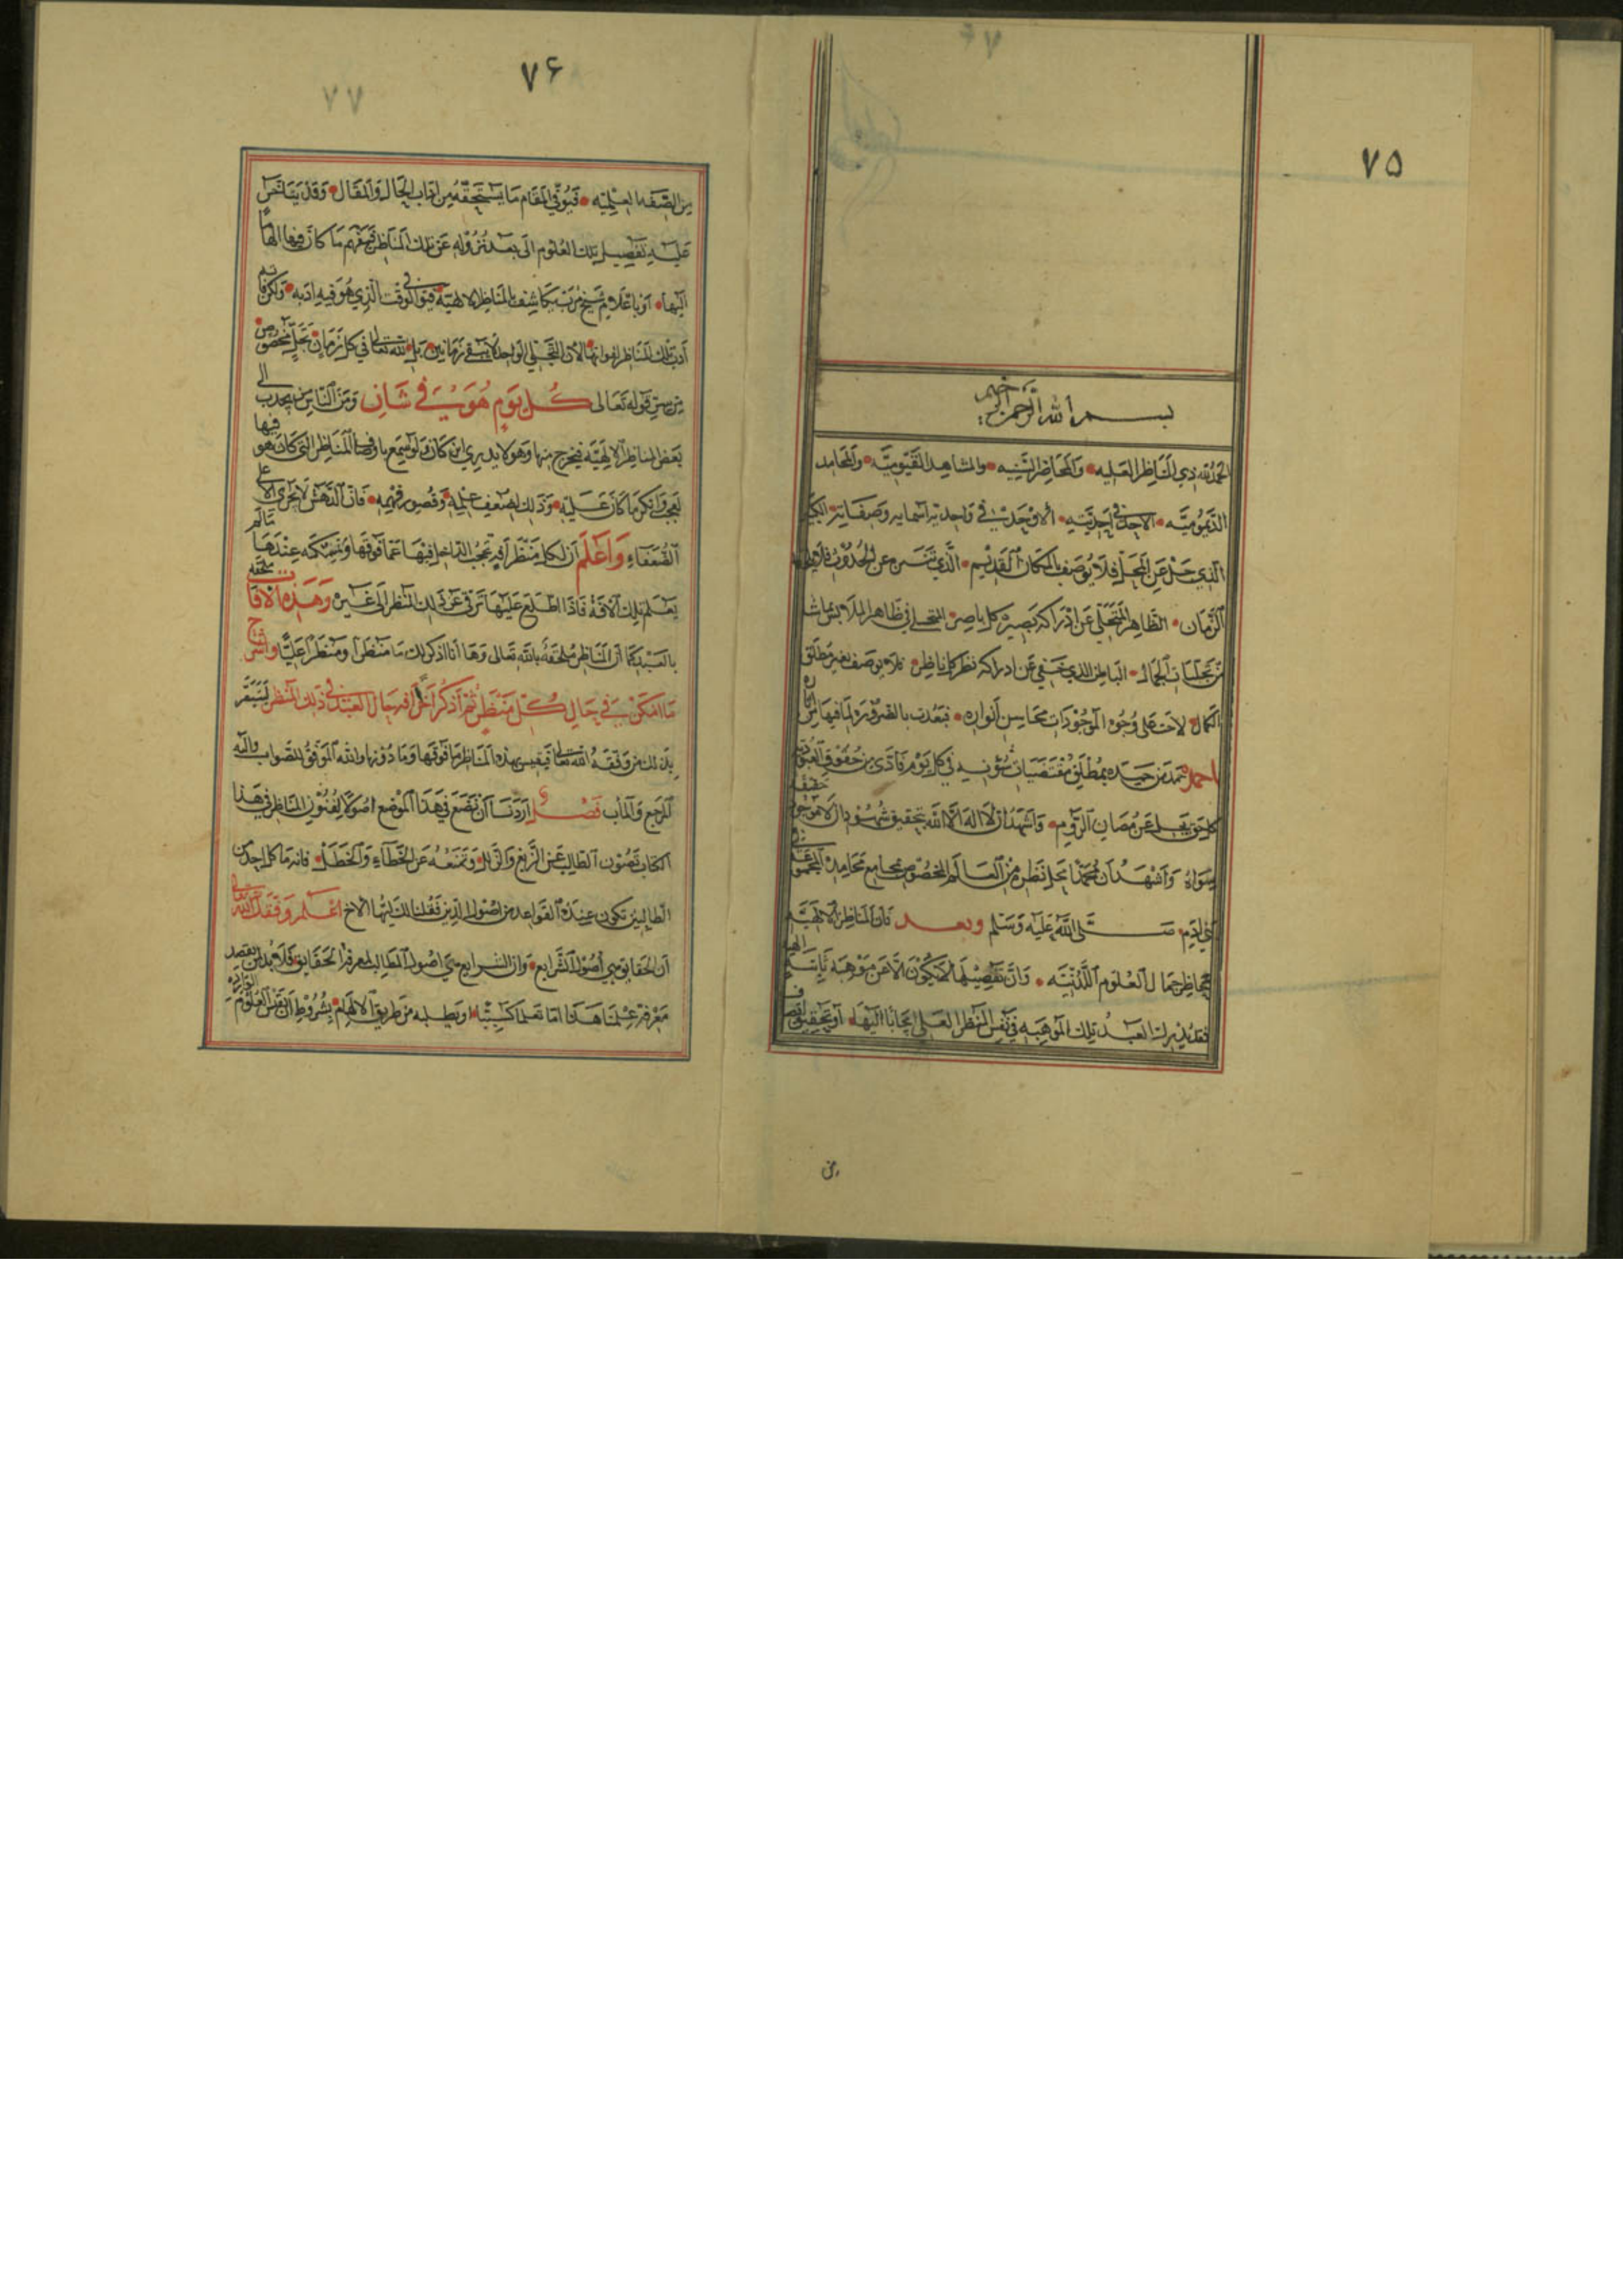 ٧٥
بسم الله الرحمن الرحيم
الحمد لله ذي المناظر العليه والمحاضر السنيه والمشاهد القيوميه والمحامد
الديموميه الاحد في احديته الاوحد في واحدية اسمايه وصفاته الكبير
الذي جل عن المحل فلا يوصف بالمكان القديم الذي تنزه عن الحدوث
الزمان الظاهر المتجلي عن ادراكه بصيرة كل باصر المتجلي في ظاهر الملابس بما شا
من تجليات الجمال الباطن الذي خفي عن ادراكه نظر كل ناظر فلا يوصف بغير مطلق
الكمال لاحت على وجوه الموجودات محاسن انواره فبعدت بالضرورة لما فيها
احمده حمد من حمده بمطلق مقتضيات شؤنه في كل يوم فادى من حقوق العبودية
كل حق يجل عن الروم واشهد ان لا اله الا الله تحقيق شهود ان لا موجود حقيقة
سواه واشهد ان محمدا محل نظره من العالم المخصوص بمجامع محامد
بني ادم صلى الله عليه وسلم وبعد فان المناظر الالهية
محاظر جمال العلوم اللدنيه وان تفصيلها لا يكون الا عن موهبة الهية
فقد يدرك العبد تلك الموهبه في نفس المنظر العلي او تحقيق
من
٧۶
٧٧
من الصفه العلميه فيوفي المقام ما يستحقه من اداب الحال والمقال وقد يتاخر
عليه تفصيل تلك العلوم الى بعد نزوله عن تلك المناظر فيفهم ما كان فيها الهاما
الهيا او باعلام شيخ مرب مكاشف بالمناظر الالهية فيوفي الوقت الذي هو فيه ادبه ولكن فاته
ادب تلك المناظر لفواتها لان التجلي الواحد لا يبقى زمانين بل لله تعالى في كل زمان تجل مخصوص
من سر قوله تعالى كل يوم هو في شان ومن الناس من يجذب الى
بعض المناظر الالهية فيخرج منها وهو لا يدري اين كان ولو سمع باوصاف المناظر التي كان هو فيها
تعجب وانكر ما كان عليه وذلك لضعف علمه وقصور فهمه فان الدهش لا يجري الا على
الضعفاء واعلم ان لكل منظر افة تحجب الداخل فيها عما فوقها وتمسكه عندها مالم
يعلم تلك الافة فاذا اطلع عليها ترقى عن ذلك المنظر الى غيره وهذه الافات ملحقة
بالعبد كما ان المناظر ملحقة بالله تعالى وها انا اذكر لك منظرا ومنظرا عليا واشرح
ما امكن في حال كل منظر ثم اذكر اخرا افه حال العبد في ذلك المنظر
بذلك من وفقه الله تعالى فيقيس بهذه المناظر ما فوقها وما دونها والله الموفق للصواب واليه
المرجع والماب فصل اردنا ان نضع في هذا الموضع اصولا لفنون المناظر في هذا
الكتاب تصون الطالب عن الزيغ والزلل وتمنعه عن الخطاء والخطل فانه ما كل احد من
الطالبين تكون عنده القواعد من اصول الدين فقلنا لك ايها الاخ اعلم وفقك الله تعالى
ان الحقايق هي اصول الشرايع وان الشرايع هي اصول المطالب لمعرفة الحقايق فلا بد لمن يقصد
معرفة علمنا هذا اما تعلما كسبيا او يطلبه من طريق الالهام بشروط ان يتقن العلوم